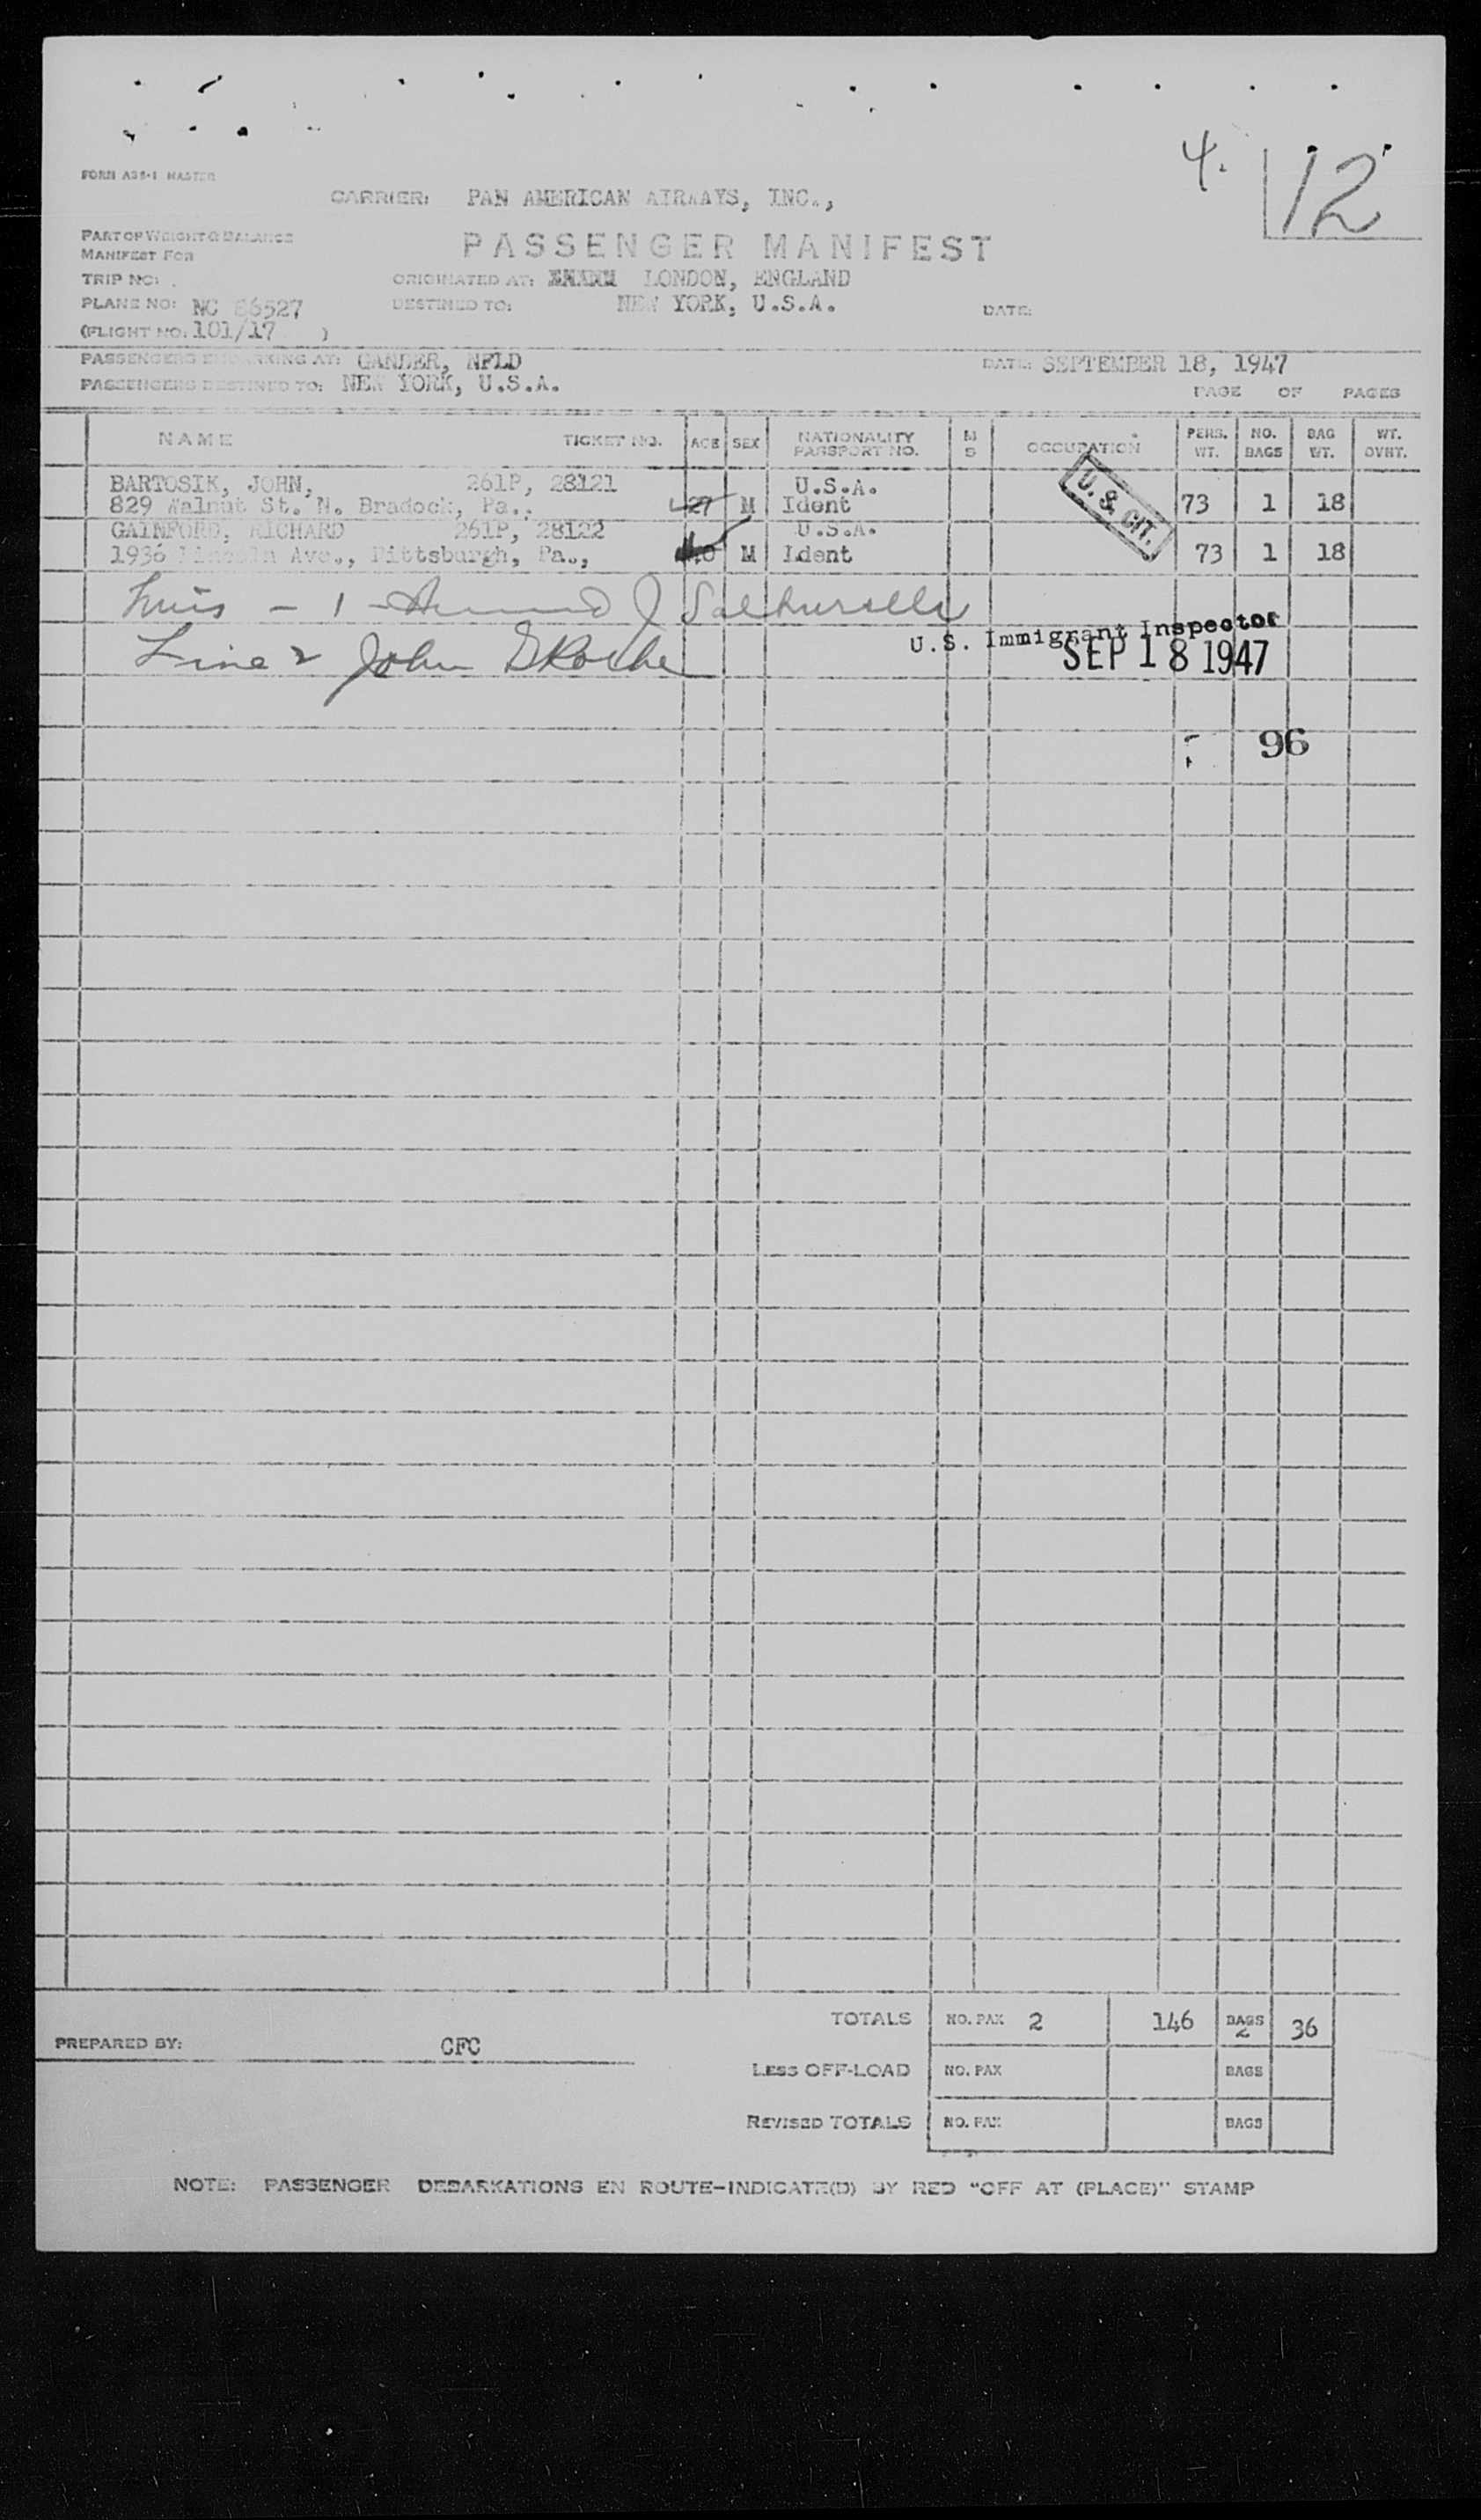 4.
12
FORM ASS-1 MASTER
CARRIER: PAN AMERICAN AIRWAYS, INC.,
PART OF WEIGHT & BALANCE
MANIFEST FOR
PASSENGER MANIFEST
TRIP NO: ORIGINATED AT: LONDON, ENGLAND
PLANE NO: NC 86527 DESTINED TO: NEW YORK, U.S.A. DATE:
(FLIGHT NO: 101/17 )
PASSENGERS EMBARKING AT: GANDER, NFLD DATE: SEPTEMBER 18, 1947
PASSENGERS DESTINED TO: NEW YORK, U.S.A.
PAGE OF PAGES
NAME TICKET NO. AGE SEX NATIONALITY PASSPORT NO. M S OCCUPATION PERS. WT. NO. BAGS BAG WT. WT. OVHT.
BARTOSIK, JOHN, 261P, 28121 U.S.A.
829 Walnut St. N. Bradock, Pa., 27 M Ident 73 1 18
U.S. CIT.
GAINFORD, RICHARD 261P, 28122 U.S.A.
1936 Lincoln Ave., Pittsburgh, Pa., M Ident 73 1 18
1 J
Line 2 John
U.S. Immigrant Inspector
SEP 18 1947
96
TOTALS NO. PAX 2 146 BAGS 2 36
PREPARED BY: CFC
LESS OFF-LOAD NO. PAX BAGS
REVISED TOTALS NO. PAX BAGS
NOTE: PASSENGER DEBARKATIONS EN ROUTE-INDICATE(D) BY RED "OFF AT (PLACE)" STAMP